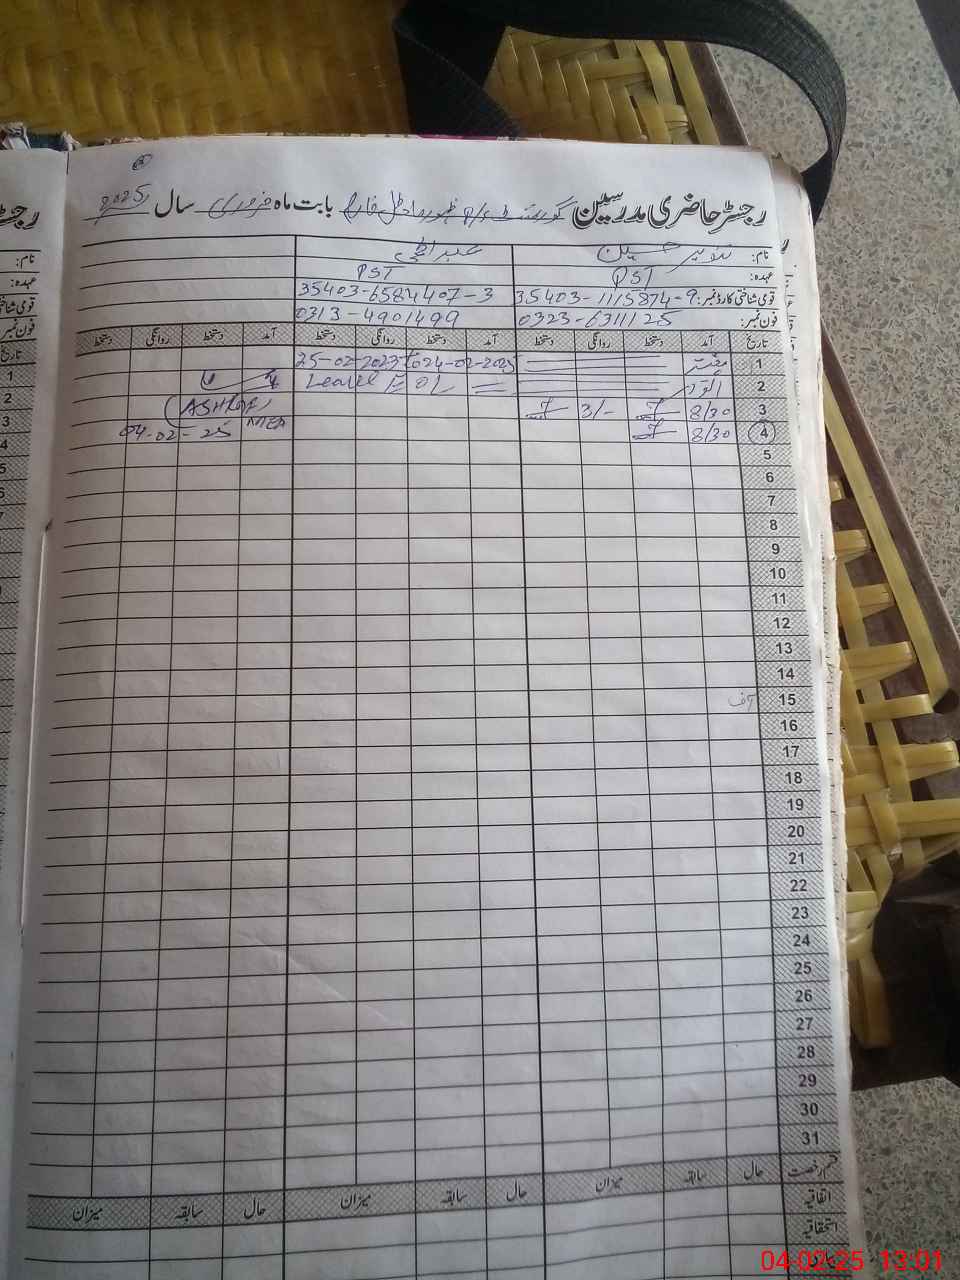 رجسٹر حاضری مدرسین گورنمنٹ بابت ماہ فروری سال 2025
نام: تنویر حسین
عہدہ: PST PST
قومی شناختی کارڈ نمبر: 35403-1115874-9 35403-6584407-3
فون نمبر: 0323-6311125 0313-4901499
تاریخ آمد دستخط روانگی دستخط آمد دستخط روانگی دستخط آمد دستخط روانگی دستخط
1 ہفتہ 25-02-2023 024-02-2025
2 اتوار Leave
3 8/30 3/- (ASHRAF)
4 8/30 04-02-25 MEA
5
6
7
8
9
10
11
12
13
14
15 آف
16
17
18
19
20
21
22
23
24
25
26
27
28
29
30
31
قسم رخصت حال سابقہ میزان حال سابقہ میزان حال سابقہ میزان
اتفاقیہ
استحقاقیہ
04-02-25 13:01